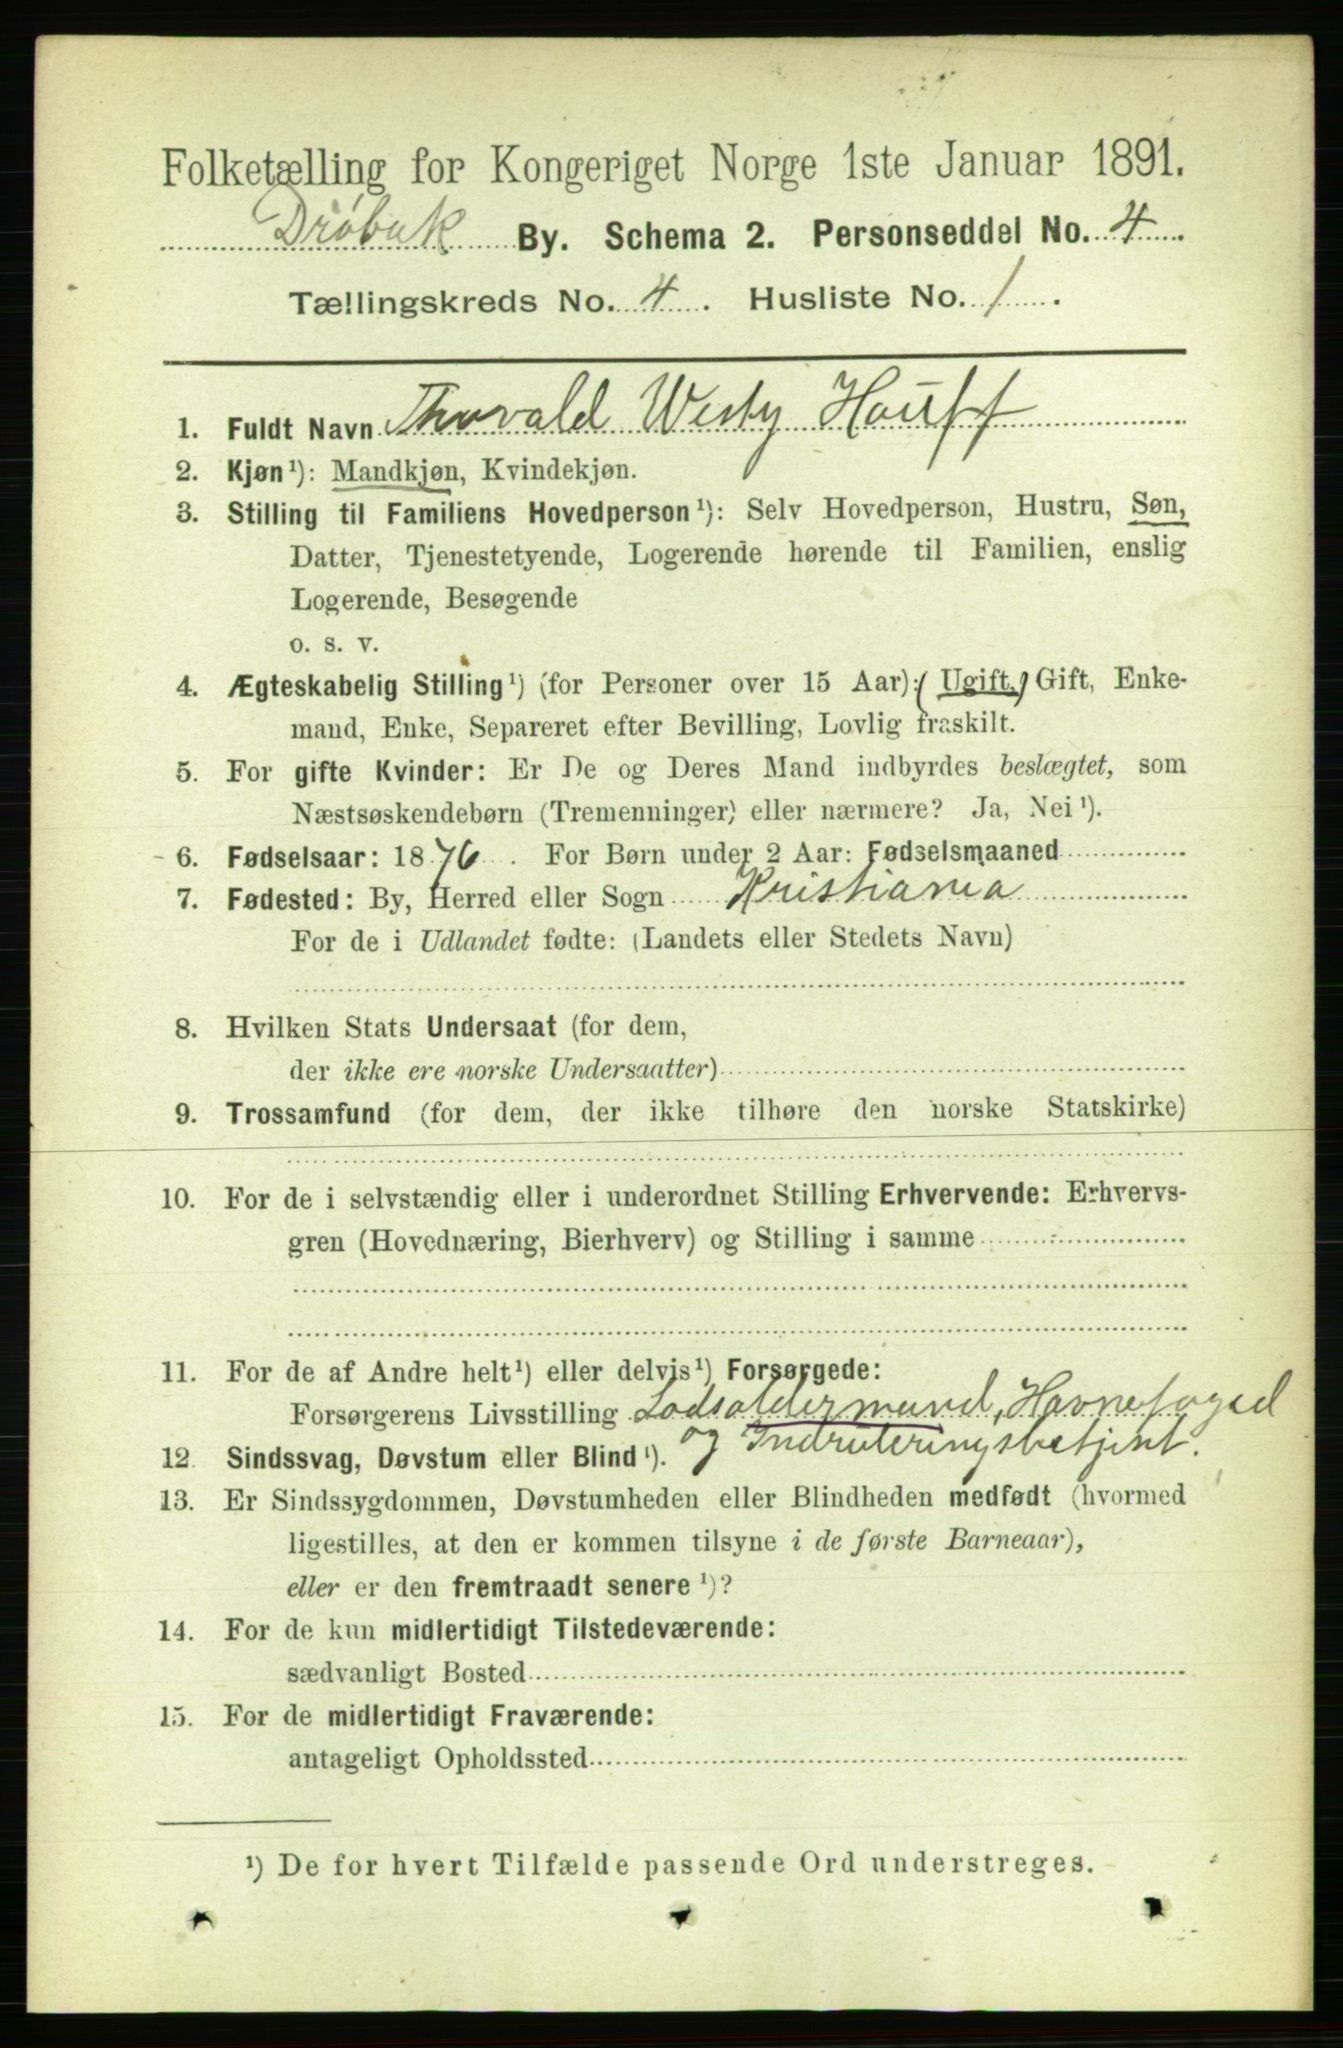 Folketælling for Kongeriget Norge 1ste Januar 1891.
Drøbak By. Schema 2. Personseddel No. 4
Tællingskreds No. 4. Husliste No. 1.
1. Fuldt Navn Thorvald Westy Hauff
2. Kjøn¹): Mandkjøn, Kvindekjøn.
3. Stilling til Familiens Hovedperson¹): Selv Hovedperson, Hustru, Søn,
Datter, Tjenestetyende, Logerende hørende til Familien, enslig
Logerende, Besøgende
o. s. v.
4. Ægteskabelig Stilling¹) (for Personer over 15 Aar): (Ugift,) Gift, Enke-
mand, Enke, Separeret efter Bevilling, Lovlig fraskilt.
5. For gifte Kvinder: Er De og Deres Mand indbyrdes beslægtet, som
Næstsøskendebørn (Tremenninger) eller nærmere? Ja, Nei¹).
6. Fødselsaar: 1876. For Børn under 2 Aar: Fødselsmaaned
7. Fødested: By, Herred eller Sogn Kristiania
For de i Udlandet fødte: (Landets eller Stedets Navn)
8. Hvilken Stats Undersaat (for dem,
der ikke ere norske Undersaatter)
9. Trossamfund (for dem, der ikke tilhøre den norske Statskirke)
10. For de i selvstændig eller i underordnet Stilling Erhvervende: Erhvervs-
gren (Hovednæring, Bierhverv) og Stilling i samme
11. For de af Andre helt¹) eller delvis¹) Forsørgede:
Forsørgerens Livsstilling Lodsoldermand, Havnefoged
og Indruleringsbetjent.
12. Sindssvag, Døvstum eller Blind¹).
13. Er Sindssygdommen, Døvstumheden eller Blindheden medfødt (hvormed
ligestilles, at den er kommen tilsyne i de første Barneaar),
eller er den fremtraadt senere¹)?
14. For de kun midlertidigt Tilstedeværende:
sædvanligt Bosted
15. For de midlertidigt Fraværende:
antageligt Opholdssted
¹) De for hvert Tilfælde passende Ord understreges.